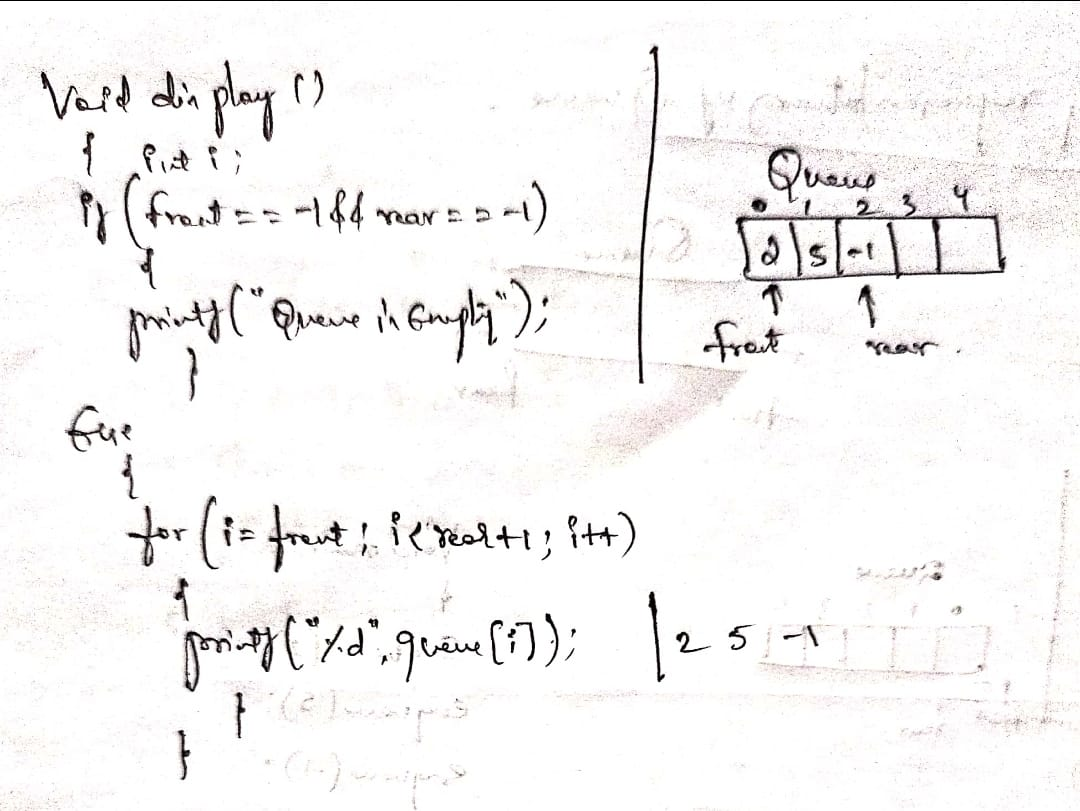 Void display ()
{ int i;
if (front == -1 && rear == -1)
{
printf("Queue is Empty");
}
Else
{
for (i= front; i< rear+1; i++)
{
printf("%d", queue[i]);
}
}
Queue
0 1 2 3 4
2 5 -1
front rear
2 5 -1